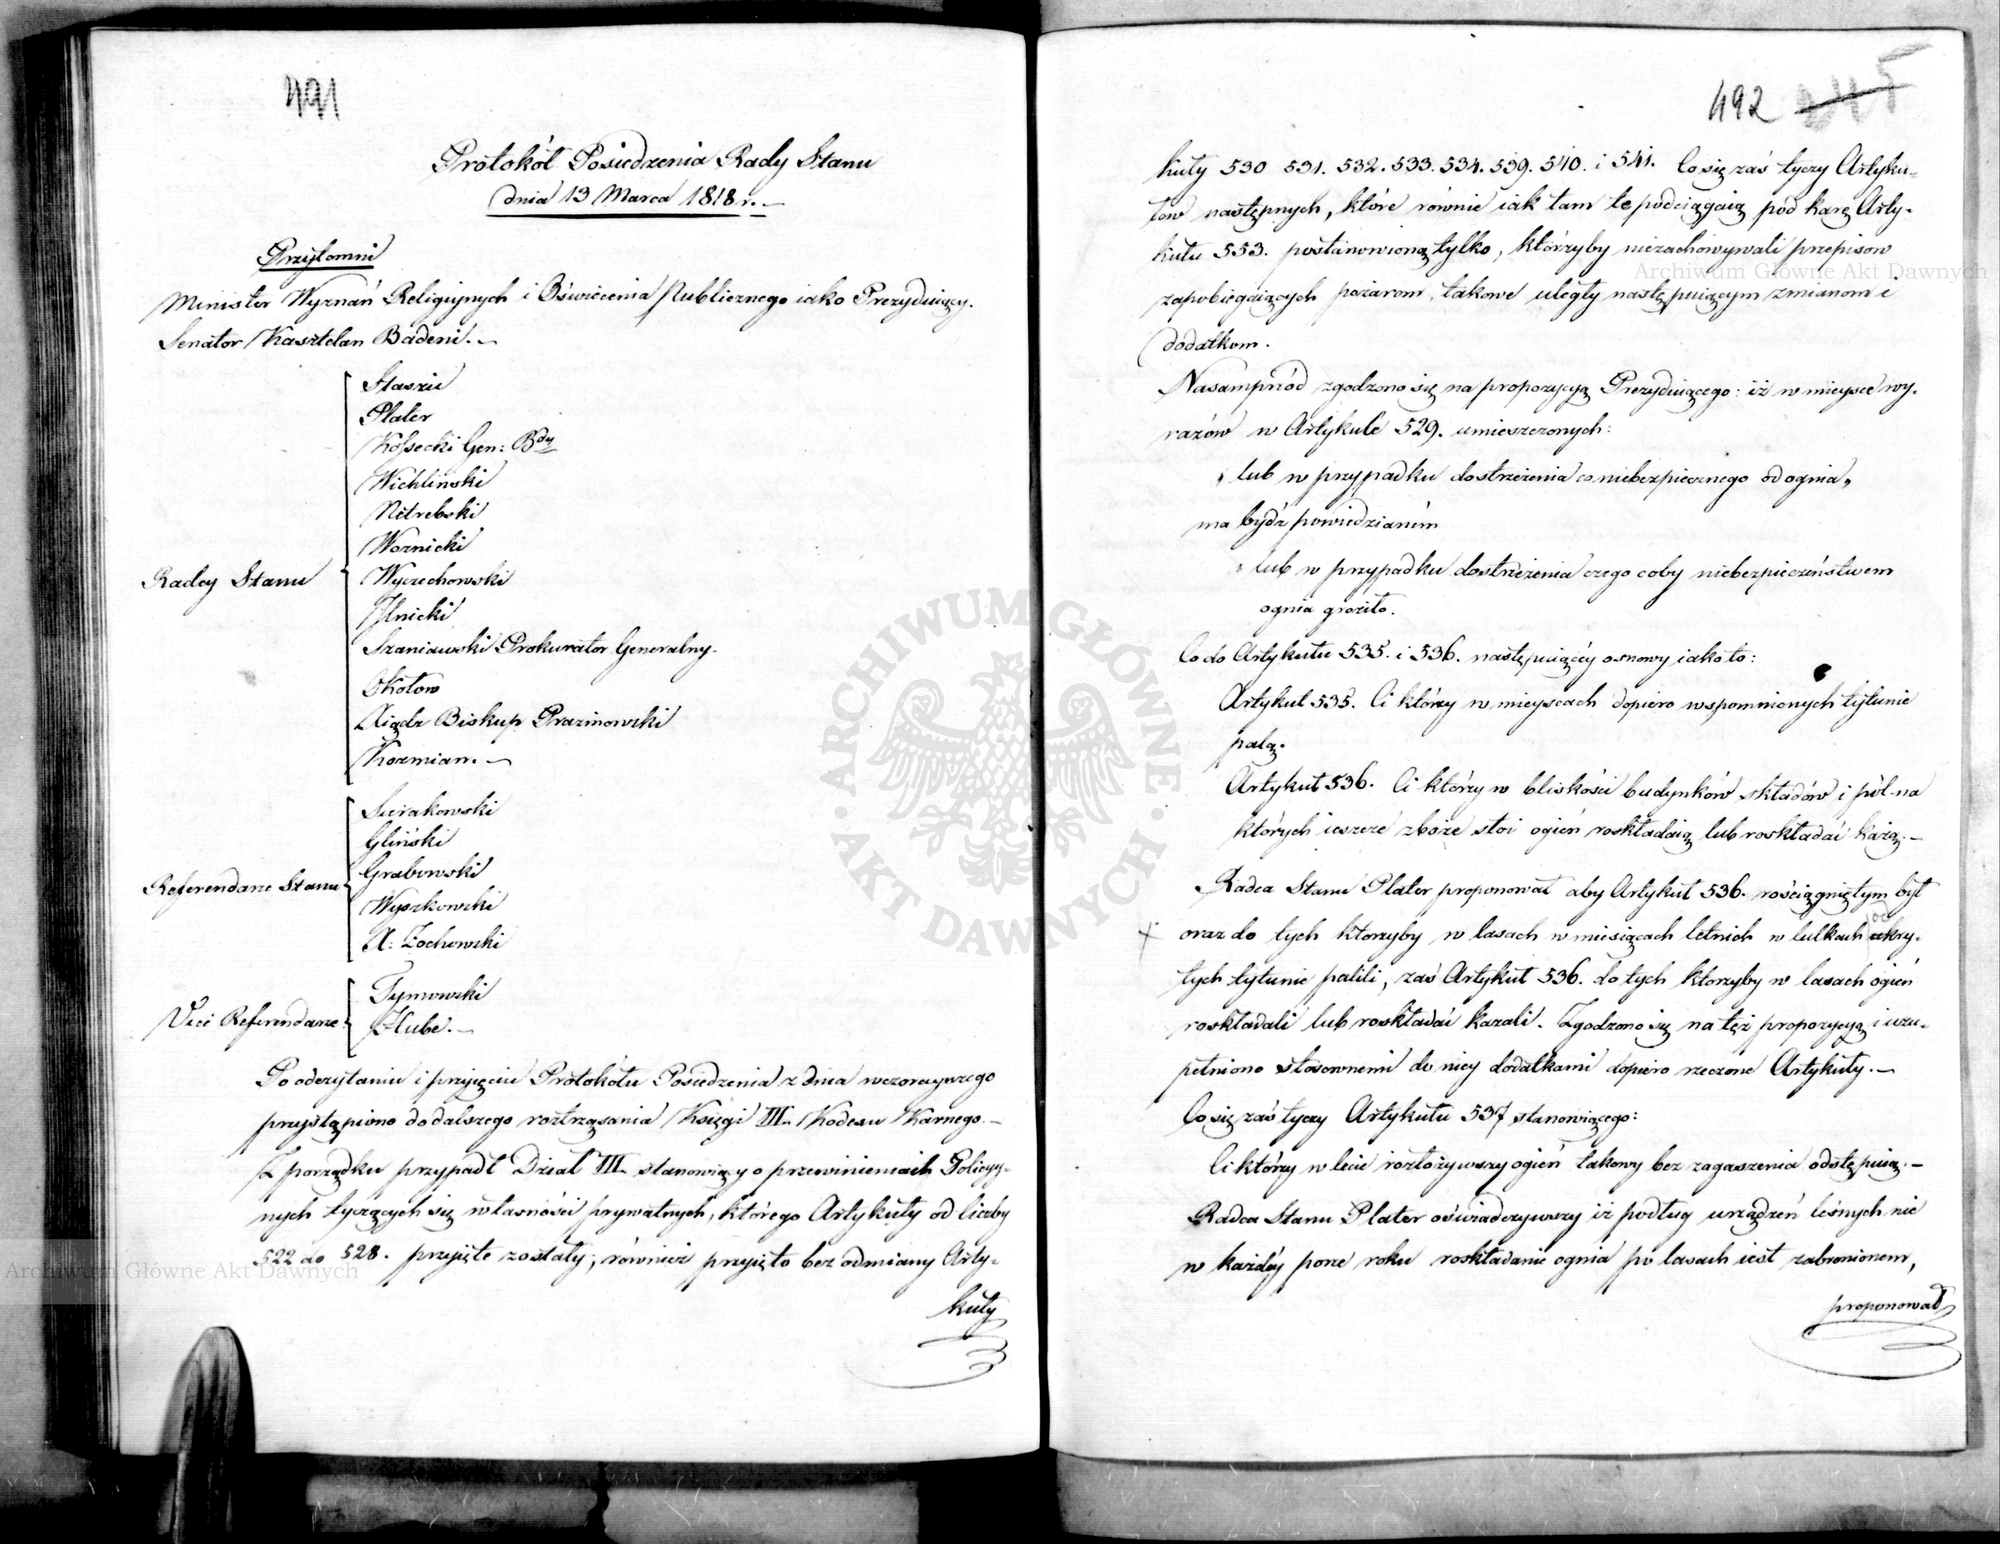 491
Protokół Posiedzenia Rady Stanu
dnia 13 Marca 1818 r.
Przytomni
Minister Wyznań Religiynych i Oświecenia Publicznego iako Prezyduiący.
Senator Kasztelan Badeni.
Staszic
Plater
Kossecki Gen: Bdy
Wichliński
Nitrebski
Woznicki
Radcy Stanu
Wyczechowski
Ilnicki
Szaniawski Prokurator Generalny.
Okołow
Xiądz Biskup Prazmowski
Kozmian.
Sierakowski
Gliński
Referendarze Stanu
Grabowski
Wyszkowski
A: Żochowski
Tymowski
Vice Referendarze
Hube.
Po odczytaniu i przyięciu Protokółu Posiedzenia z dnia wczorayszego
przystąpiono do dalszego roztrząsania Księgi III. Kodexu Karnego.
Z porządku przypadł Dział III. stanowiący o przewinieniach Policyy-
nych tyczących się własności prywatnych, którego Artykuły od liczby
522 do 528. przyięte zostały; również przyięto bez odmiany Arty-
kuły
492
kuły 530 531. 532. 533. 534. 539. 540. i 541. Co się zaś tyczy Artyku-
łow następnych, które równie iak tam te podciągaią pod karę Arty-
kułu 553. postanowioną tylko, którzyby niezachowywali przepisow
zapobiegaiących pożarom, takowe uległy następuiącym zmianom i
dodatkom.
Nasamprzód zgodzono się na propozycyą Prezyduiącego: iż w mieysce wy-
razów w Artykule 529. umieszczonych:
„lub w przypadku dostrzeżenia co niebezpiecznego od ognia„
ma bydź powiedzianém
„lub w przypadku dostrzeżenia czego coby niebezpieczeństwem
ognia groziło.
Co do Artykułu 535. i 536. następuiącéy osnowy iako to:
Artykuł 535. Ci którzy w mieyscach dopiero wspomnionych tytunie
palą.
Artykuł 536. Ci którzy w bliskości budynków składów i pól na
których ieszcze zboże stoi ogień roskładaią lub roskładać każą.
Radca Stanu Plater proponował aby Artykuł 536. rościągniętym był
oraz do tych ktorzyby w lasach w miesiącach letnich w lulkach odkry-
tych tytunie palili, zaś Artykuł 536. do tych ktorzyby w lasach ogień
roskładali lub roskładać kazali. Zgodzono się na też propozycyą i uzu-
pełniono stosownemi do niey dodatkami dopiero rzeczone Artykuły.
Co się zaś tyczy Artykułu 537 stanowiącego:
Ci którzy w lecie rozłożywszy ogień takowy bez zagaszenia odstępuią.
Radca Stanu Plater oświadczywszy iż podług urządzeń leśnych nie
w każdéy porze roku roskładanie ognia po lasach iest zabronionem,
proponował
ARCHIWUM GŁÓWNE AKT DAWNYCH
Archiwum Główne Akt Dawnych
Archiwum Główne Akt Dawnych